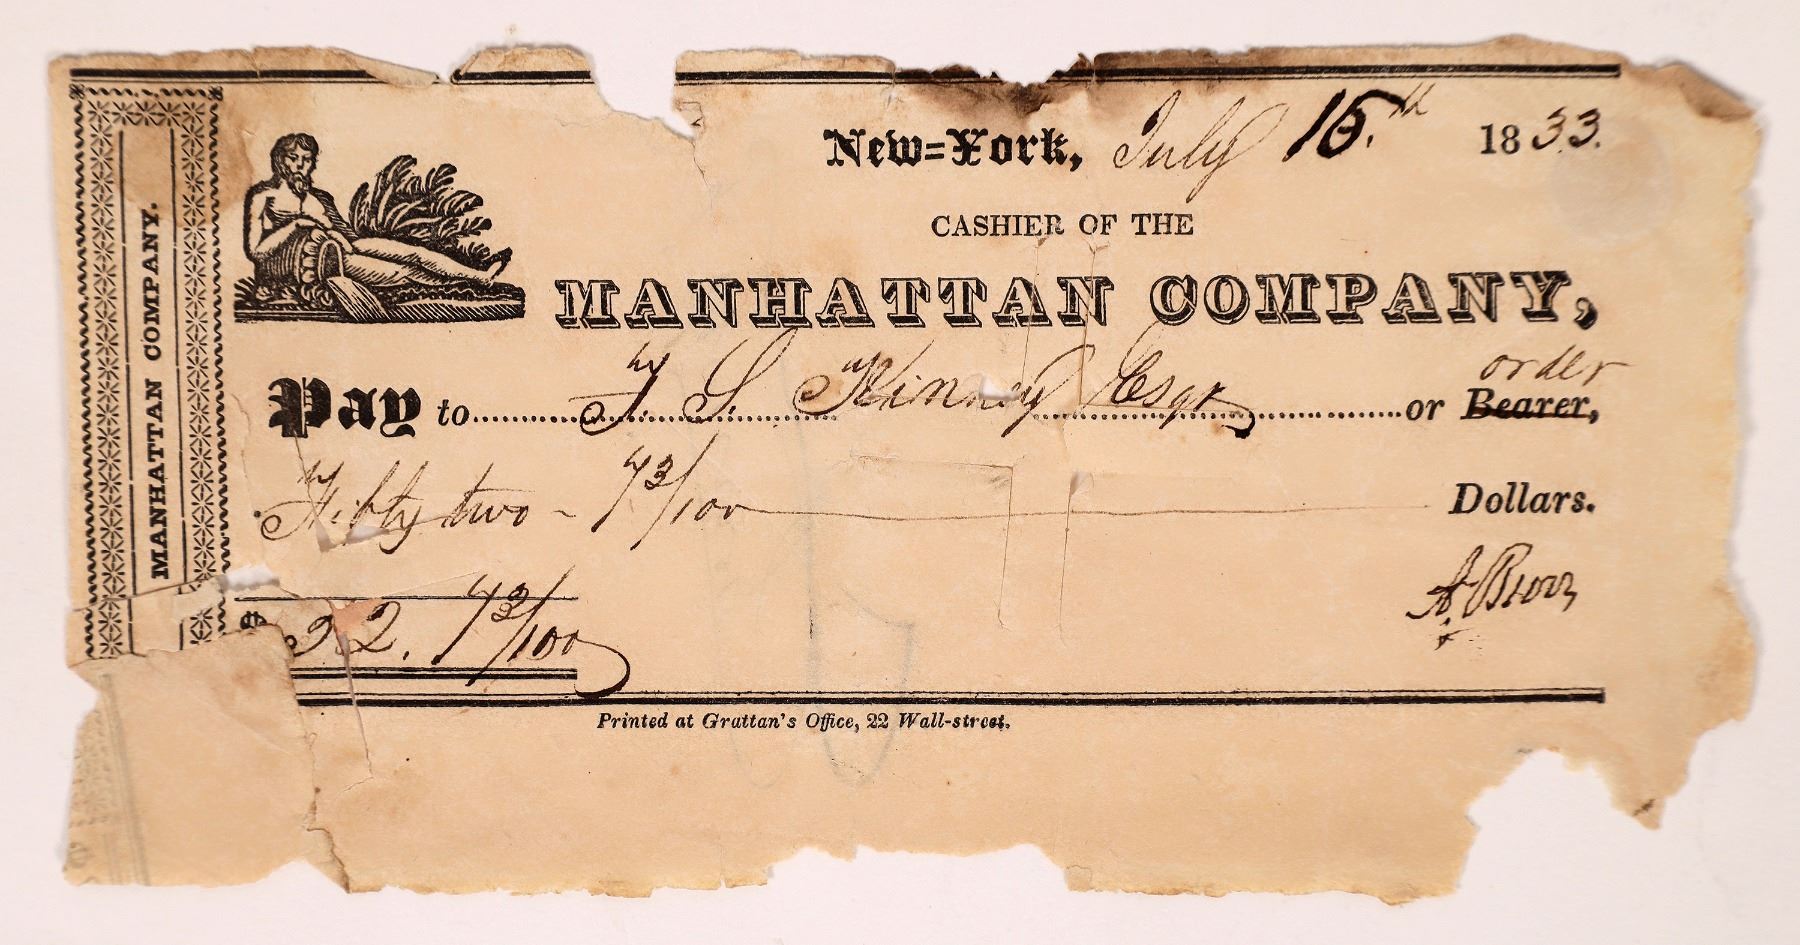 MANHATTAN COMPANY.
New=York, July 15.th 1833.
CASHIER OF THE
MANHATTAN COMPANY,
order
Pay to F. S. Kinney Esqr or Bearer,
Fifty two - 73/100 Dollars.
$52.73/100
A. Brown
Printed at Grattan's Office, 22 Wall-street.